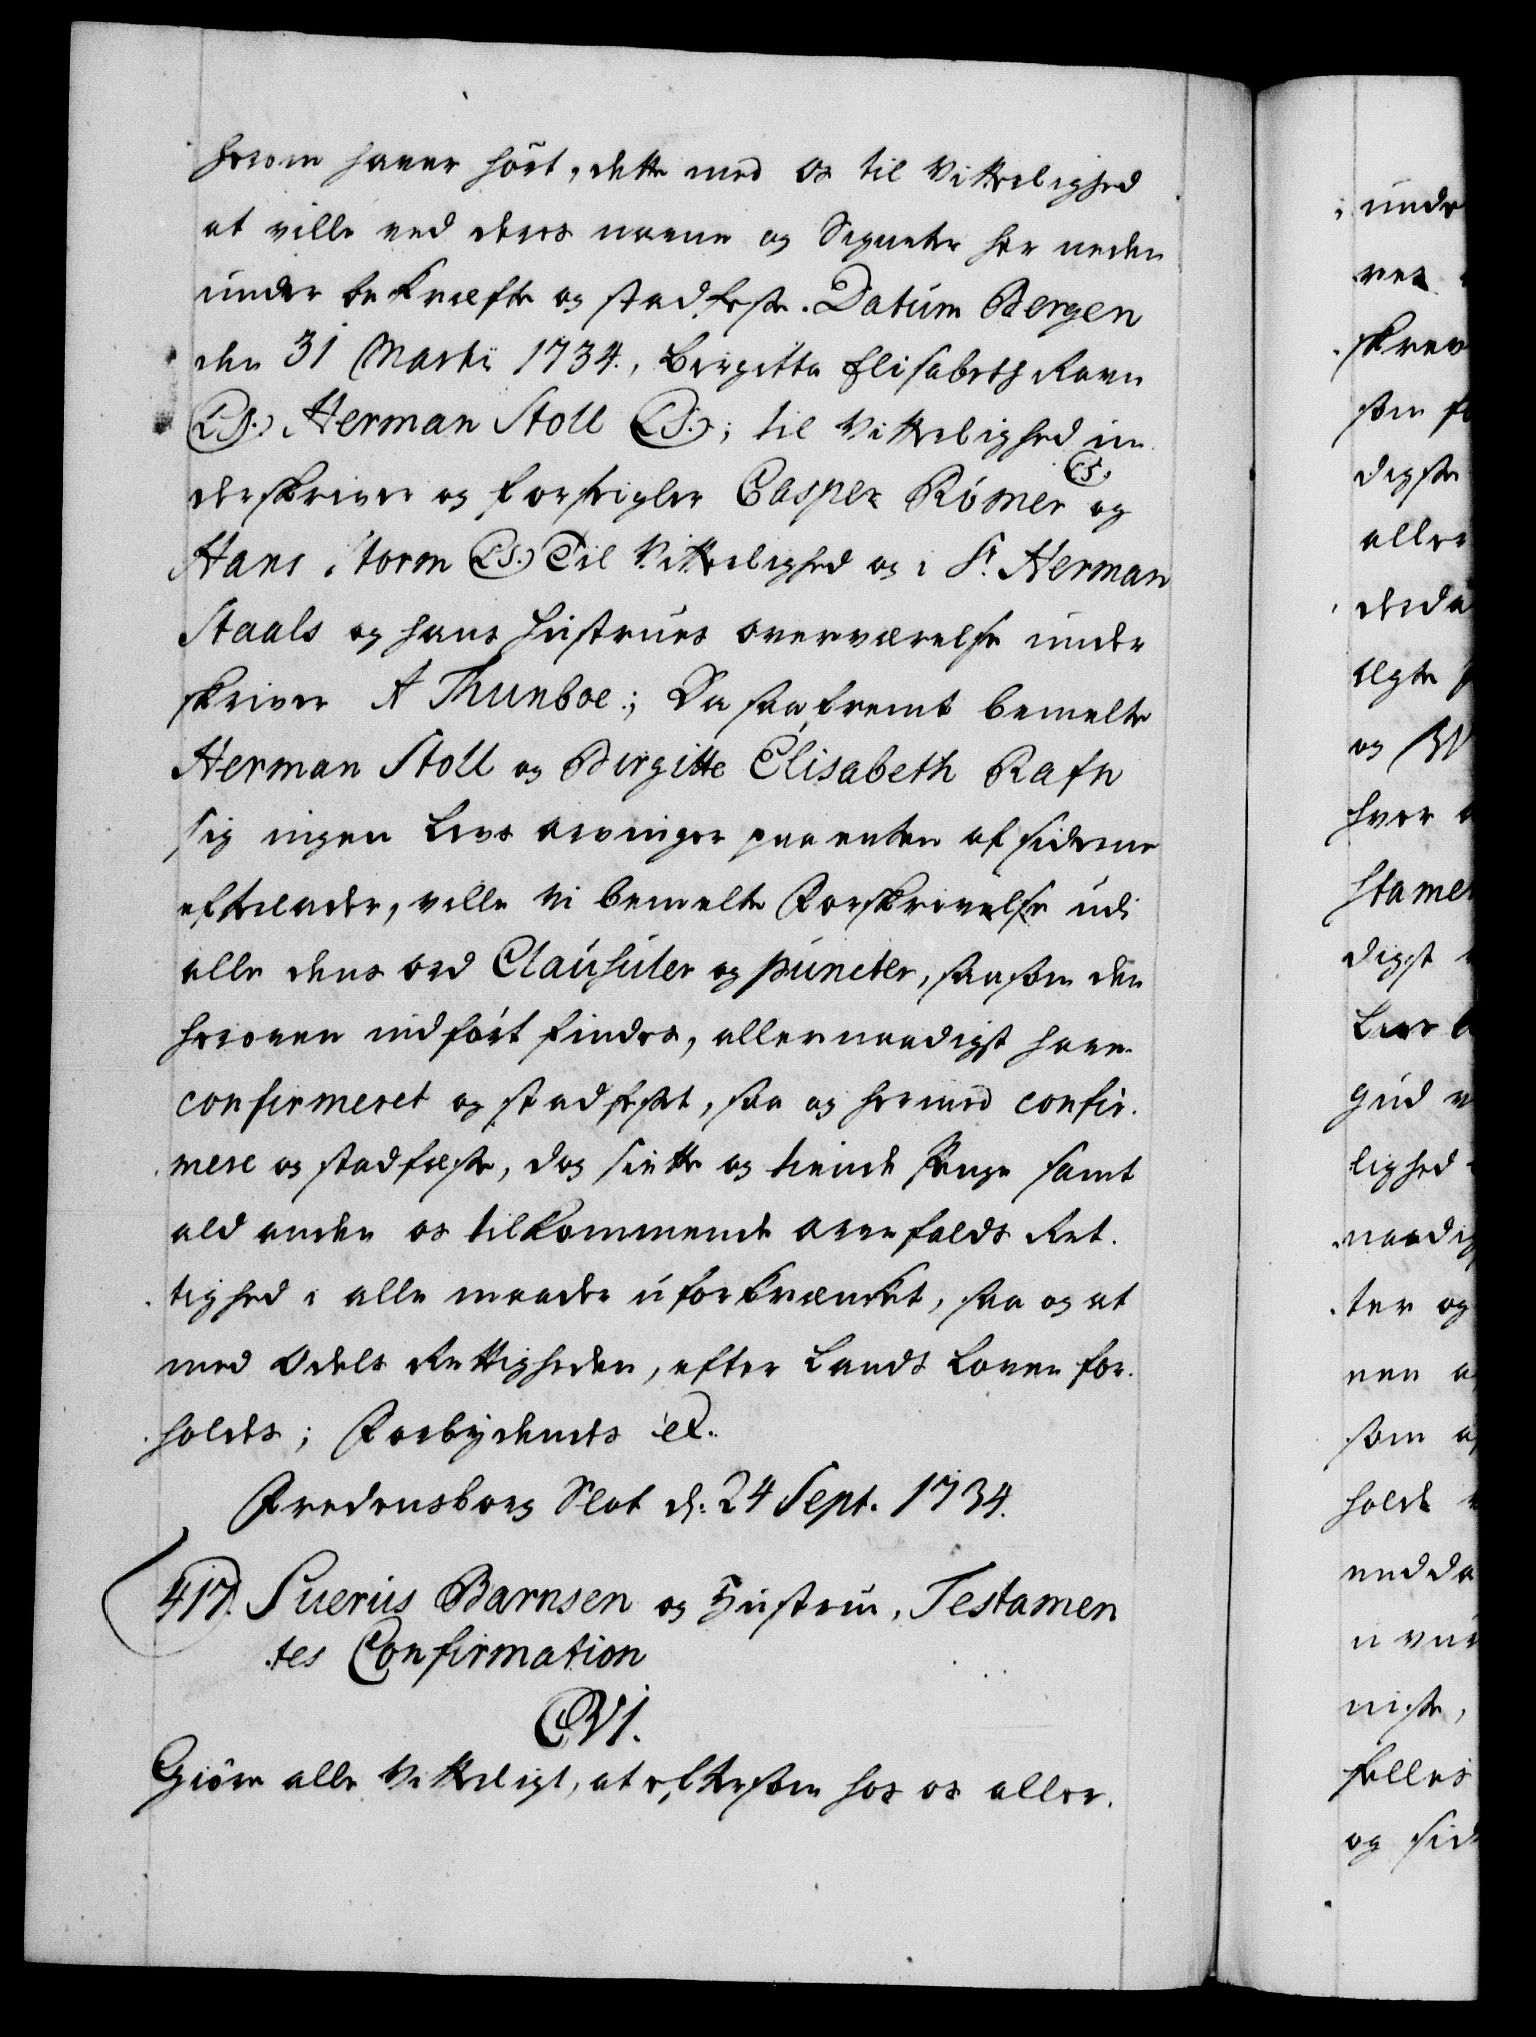 herom haver hört, dette med os til Vitterlighed
at ville ved deres navne og Signeter her neden
under bekræfte og stadfeste. Datum Bergen
den 31 Martii 1734., Birgitta Elisabeth Ravn
(LS.) Herman Stoll (LS.); til Vitterlighed un
derskriver og forseigler Casper Römer (LS.) og
Hans Storm (LS.) Til Vitterlighed og i Sr. Herman
Staals og hans Hustrues overværelse under
skriver A Thunboe.; Da saafremt bemelte
Herman Stoll og Birgitte Elisabeth Rafn
sig ingen Livs arvinger paa enten af siderne
efterlader, ville Vi bemelte Forskrivelse udi
alle dens ord Clausuler og puncter, saasom den
herover indfört findes, allernaadigst have
confirmeret og stadfestet, saa og hermed confir-
mere og stadfæste, dog siette og tiende Penge samt
ald anden os tilkommende arvefalds Ret-
tighed i alle maader uforkrænket, saa og at
med Odels Rettigheden, efter Lands Loven for-
holdes; Forbydendes &c.
Fredensborg Slot d: 24 Sept. 1734.
417. Suerus Barnsen og Hustrue, Testamen
tes Confirmation
C VI.
Giöre alle Vitterligt, at eftersom hos os aller-
unde
ver
skrev
som
digste
aller
derda
ægte
og
hver
stamen
digst
Gud
lighed
naadig
ter og
nen
som
holde
endda
niste,
felles
og sid